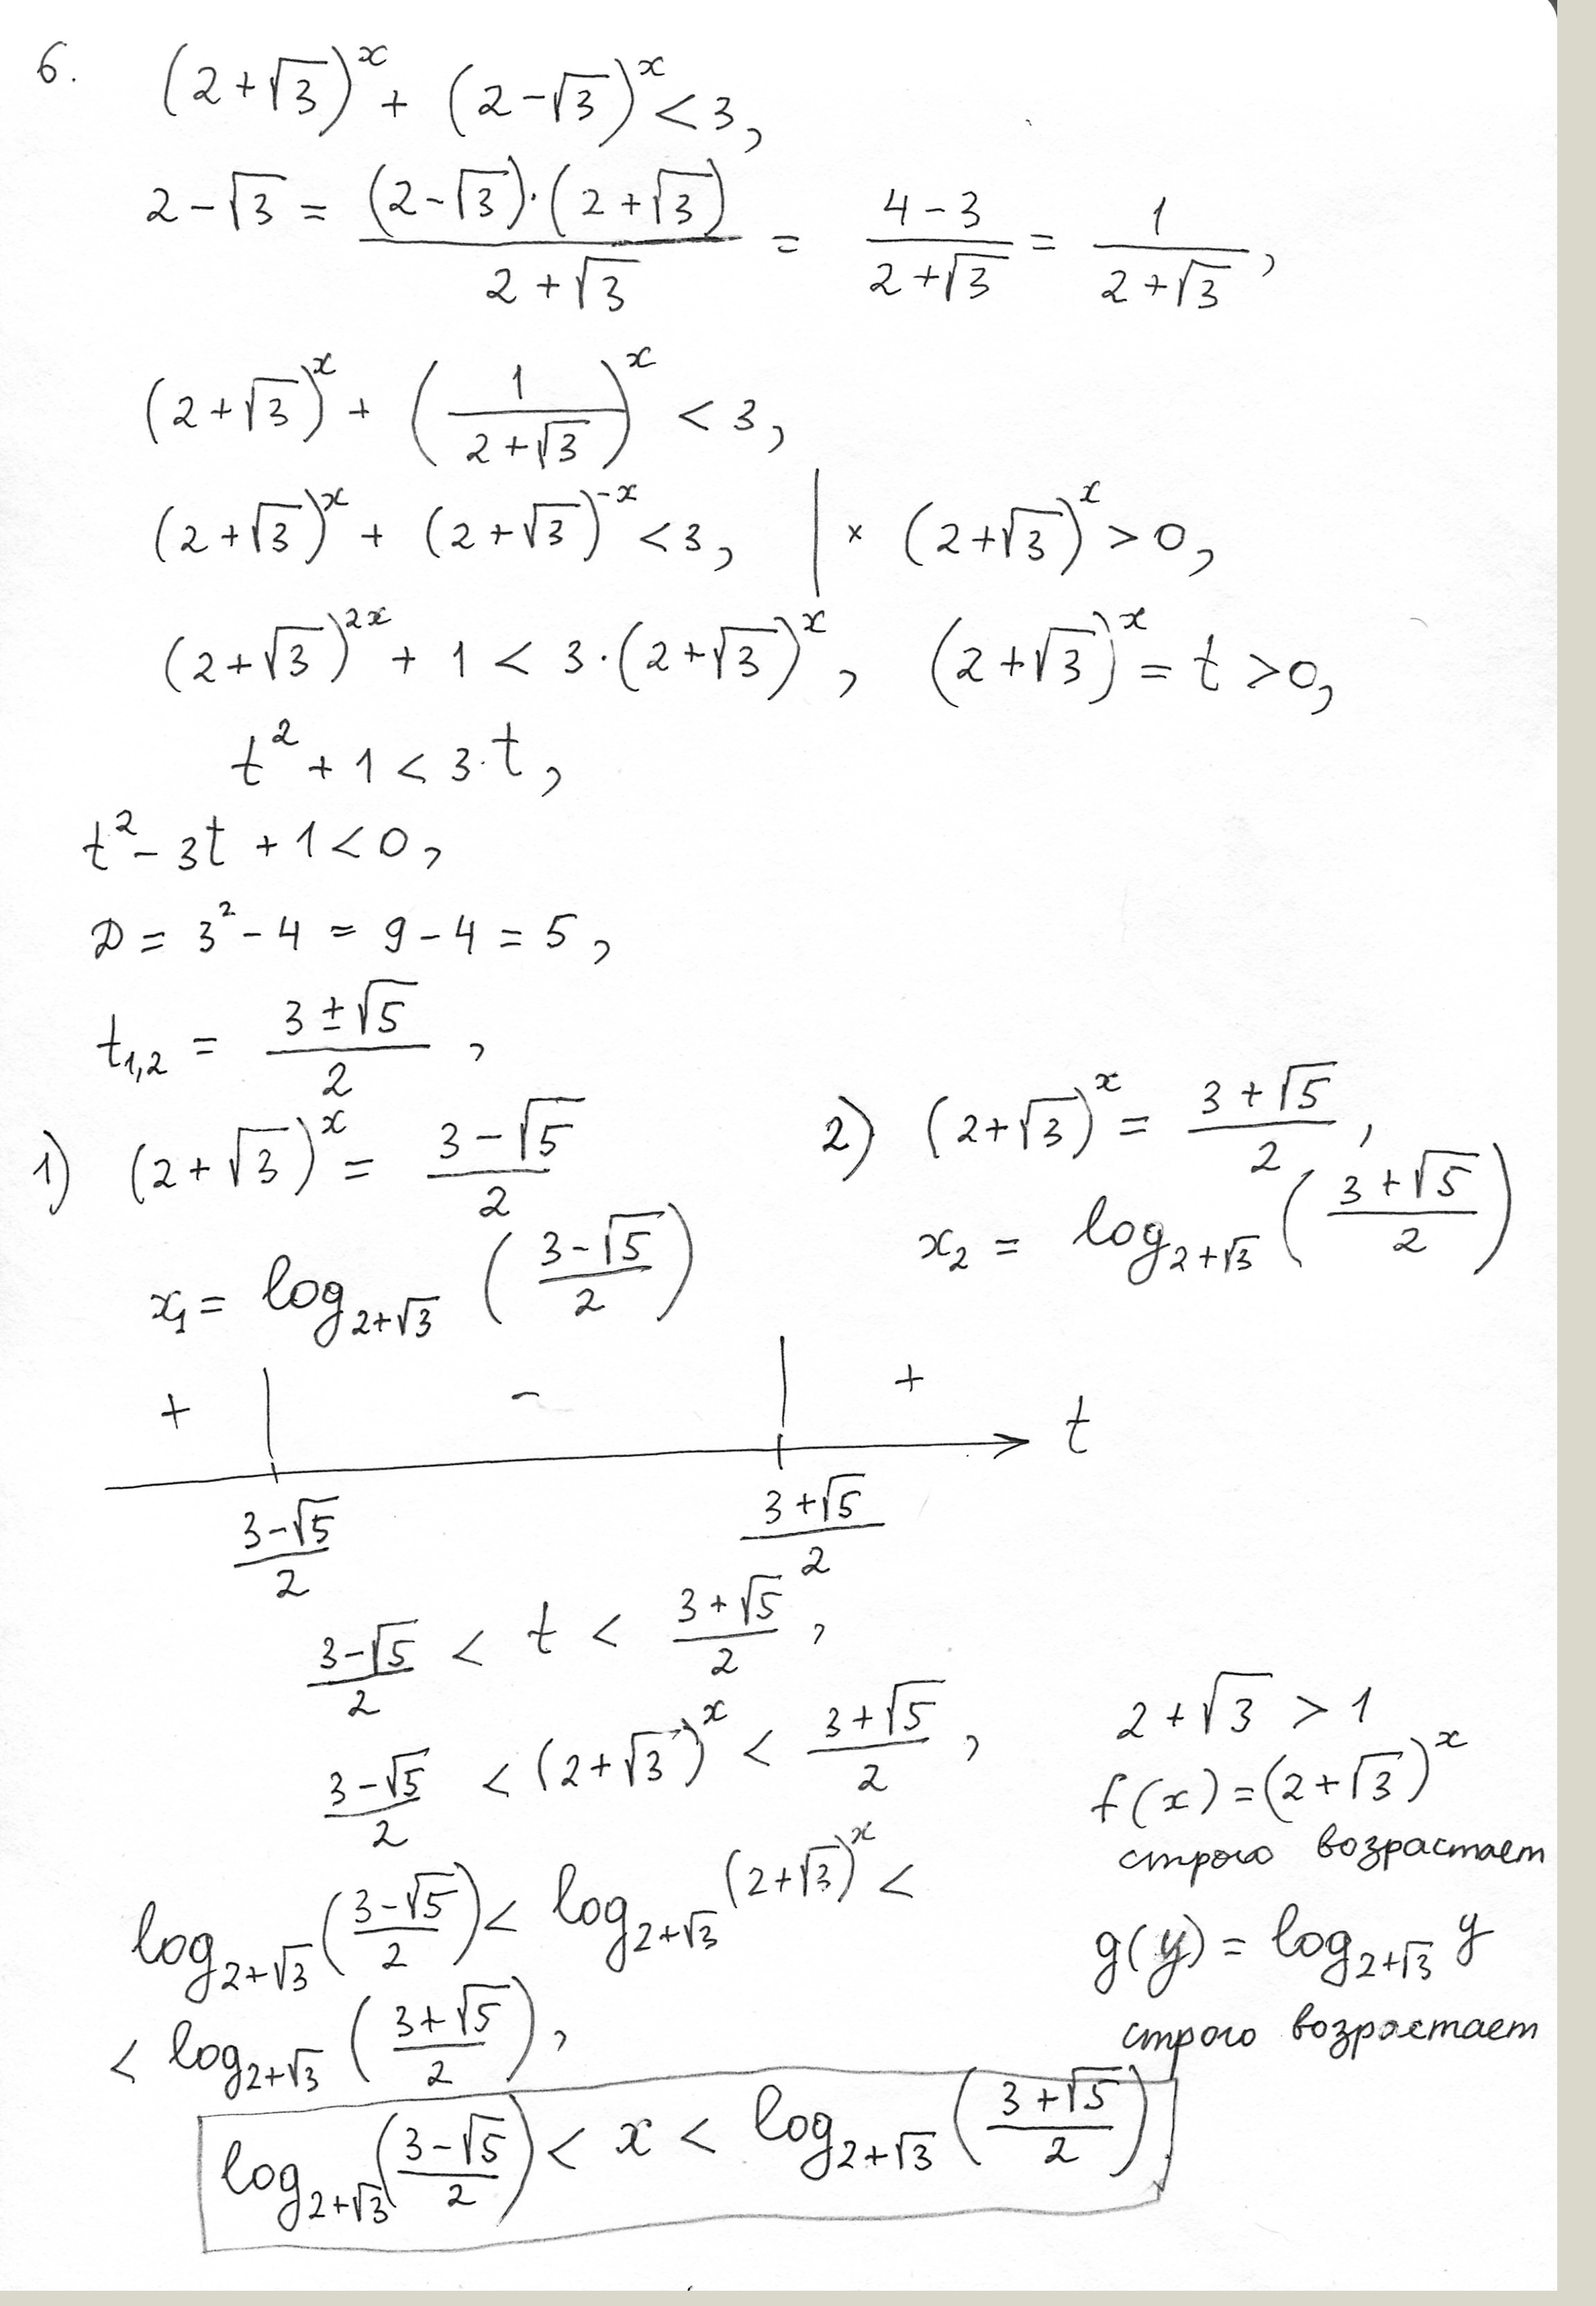 6. (2+√3)^x + (2-√3)^x < 3,
2-√3 = ((2-√3)·(2+√3))/(2+√3) = (4-3)/(2+√3) = 1/(2+√3),
(2+√3)^x + (1/(2+√3))^x < 3,
(2+√3)^x + (2+√3)^(-x) < 3, | × (2+√3)^x > 0,
(2+√3)^(2x) + 1 < 3·(2+√3)^x, (2+√3)^x = t > 0,
t² + 1 < 3·t,
t² - 3t + 1 < 0,
D = 3² - 4 = 9 - 4 = 5,
t_{1,2} = (3±√5)/2,
1) (2+√3)^x = (3-√5)/2
x₁ = log_{2+√3} ((3-√5)/2)
2) (2+√3)^x = (3+√5)/2,
x₂ = log_{2+√3} ((3+√5)/2)
+ - + t
(3-√5)/2 (3+√5)/2
(3-√5)/2 < t < (3+√5)/2,
(3-√5)/2 < (2+√3)^x < (3+√5)/2,
log_{2+√3} ((3-√5)/2) < log_{2+√3} (2+√3)^x <
< log_{2+√3} ((3+√5)/2),
2+√3 > 1
f(x) = (2+√3)^x
строго возрастает
g(y) = log_{2+√3} y
строго возрастает
log_{2+√3} ((3-√5)/2) < x < log_{2+√3} ((3+√5)/2).